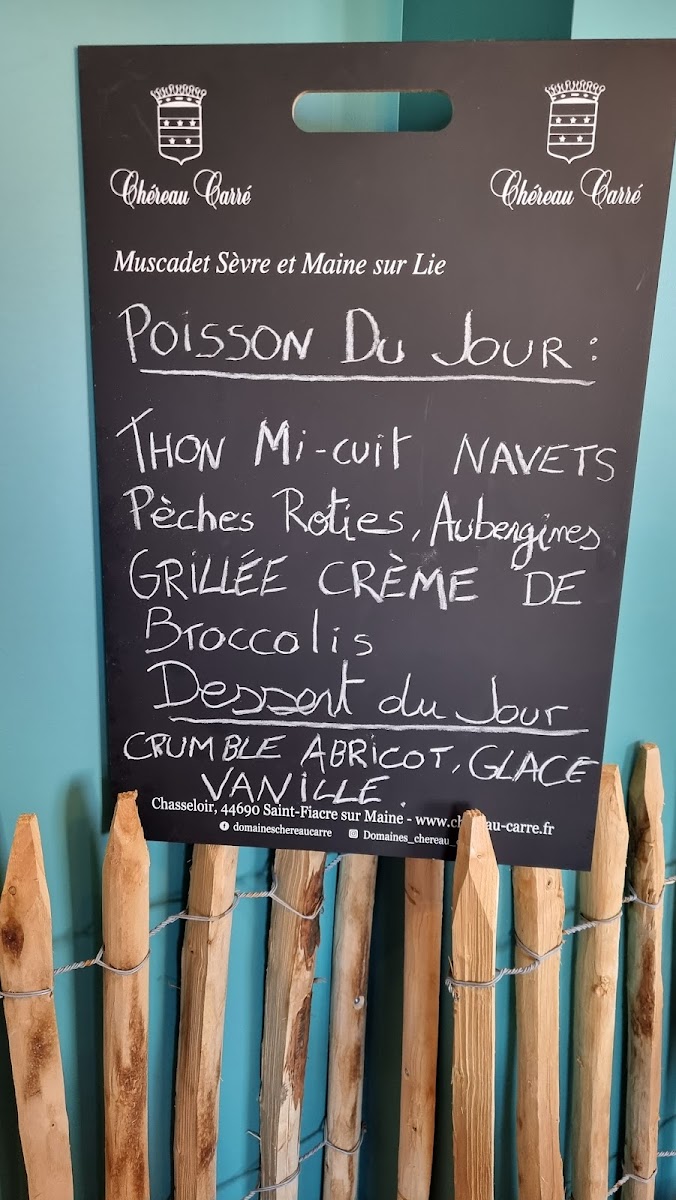 Chéreau Carré
Chéreau Carré
Muscadet Sèvre et Maine sur Lie
POISSON DU JOUR :
THON Mi-cuit NAVETS
Pèches Roties, Aubergines
GRILLÉE CRÈME DE
Broccolis
Dessert du Jour
CRUMBLE ABRICOT, GLACE
VANILLE.
Chasseloir, 44690 Saint-Fiacre sur Maine - www.ch eau-carre.fr
domaineschereaucarre Domaines_chereau_